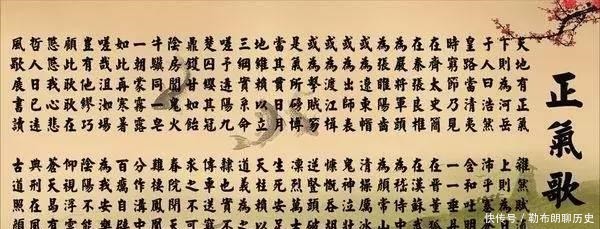 正氣歌
天地有正氣 雜然賦流
下則為河岳 上則為日
于人曰浩然 沛乎塞蒼
皇路當清夷 含和吐明
時窮節乃見 一一垂丹
在齊太史簡 在晉董狐
在秦張良椎 在漢蘇武
為嚴將軍頭 為嵇侍中
為張睢陽齒 為顏常山
或為遼東帽 清操厲冰
或為出師表 鬼神泣壯
或為渡江楫 慷慨吞胡
或為擊賊笏 逆豎頭破
是氣所磅礴 凜烈萬古
當其貫日月 生死安足
地維賴以立 天柱賴以
三綱實係命 道義為之
嗟予遘陽九 隸也實不
楚囚纓其冠 傳車送窮
鼎鑊甘如飴 求之不可
陰房闃鬼火 春院閟天
牛驥同一皂 雞棲鳳凰
一朝蒙霧露 分作溝中
如此再寒暑 百癘自辟
嗟哉沮洳場 為我安樂
豈有他繆巧 陰陽不能
顧此耿耿在 仰視浮雲
悠悠我心悲 蒼天曷有
哲人日已遠 典刑在夙
風檐展書讀 古道照顏
快传号 / 勒布朗聊历史